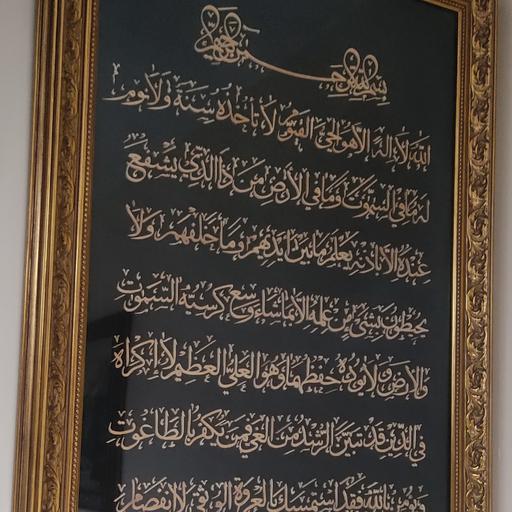 بسم الله الرحمن الرحيم
الله لا إله إلا هو الحي القيوم لا تأخذه سنة ولا نوم
له ما في السموات وما في الأرض من ذا الذي يشفع
عنده إلا بإذنه يعلم ما بين أيديهم وما خلفهم ولا
يحيطون بشيء من علمه إلا بما شاء وسع كرسيه السموات
والأرض ولا يؤده حفظهما وهو العلي العظيم لا إكراه
في الدين قد تبين الرشد من الغي فمن يكفر بالطاغوت
ويؤمن بالله فقد استمسك بالعروة الوثقى لا انفصام